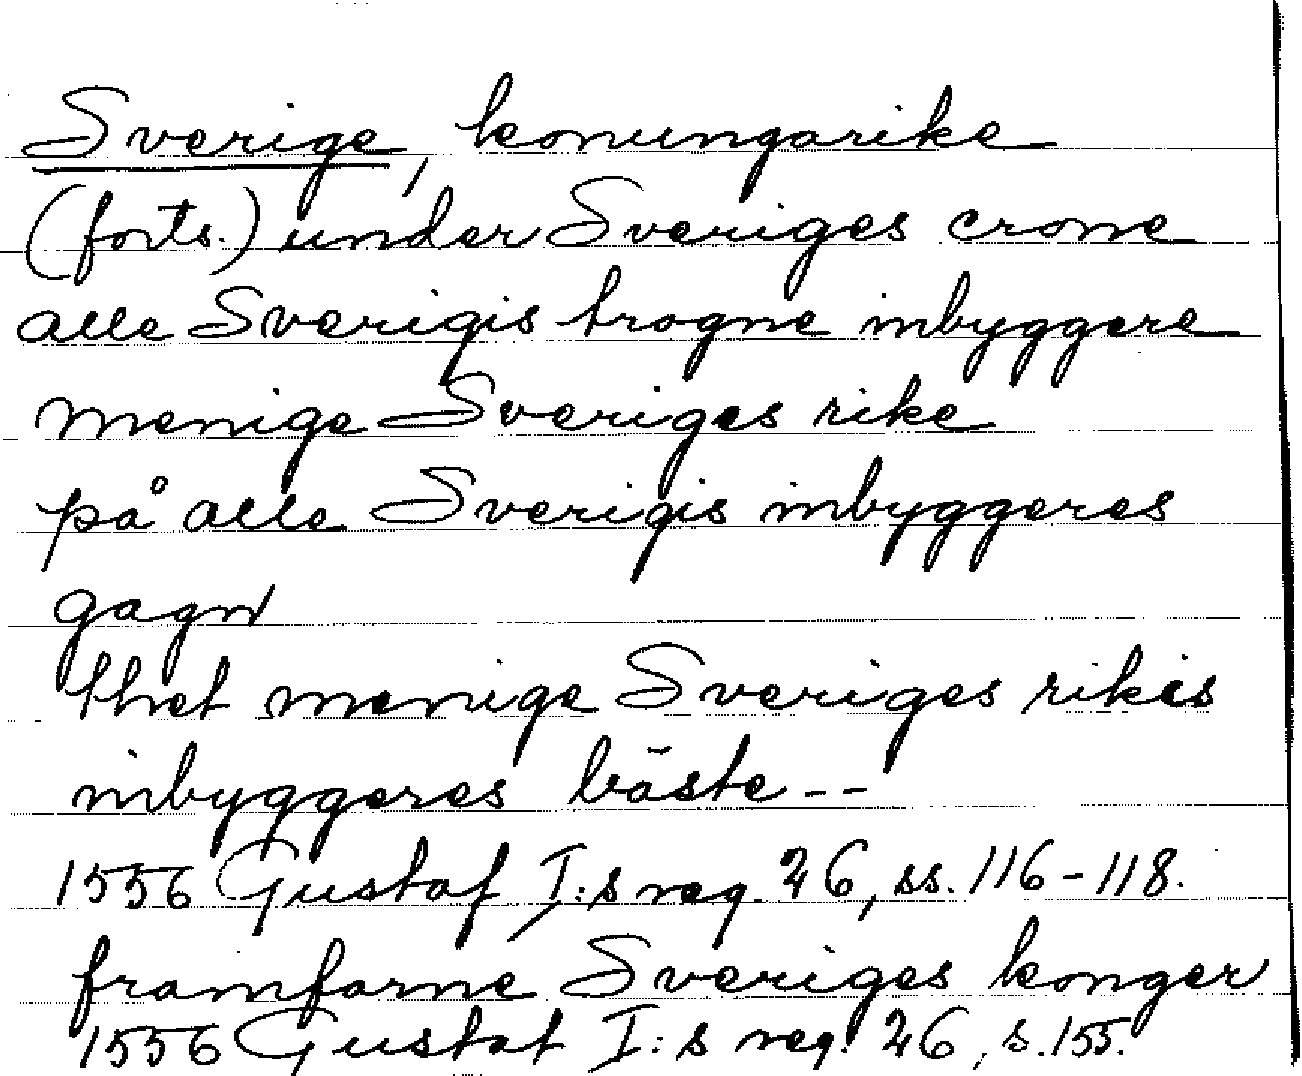 Sverige, konungarike
(forts.) under Sveriges crone
alle Sverigis trogne inbyggere
menige Sveriges rike
på alle Sverigis inbyggeres
gagn
thet menige Sveriges rikis
inbyggeres bäste--
1556 Gustaf I:s reg. 26, ss. 116-118.
framfarne Sveriges konger
1556 Gustaf I:s reg. 26, s. 155.